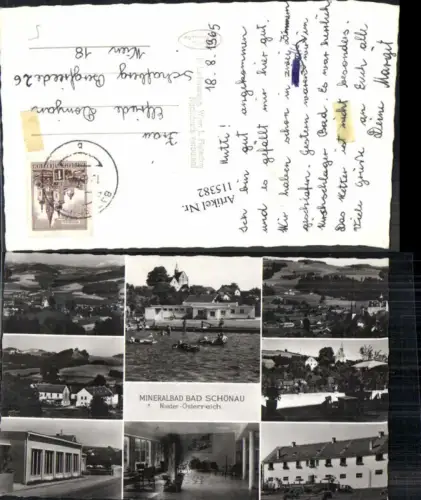 18.8.1965
Mutti!
Ich bin gut angekommen
und es gefällt mir hier gut.
Wir haben schon in zwei Zimmern
geschlafen. Gestern waren wir im
Kirchschlager Bad. Es war herrlich.
Das Wetter ist nicht besonders.
Viele Grüße an Euch alle
Deine Margit
Frau
Elfriede
Wien 18
Artikel Nr.
115382
MINERALBAD BAD SCHÖNAU
Nieder-Österreich